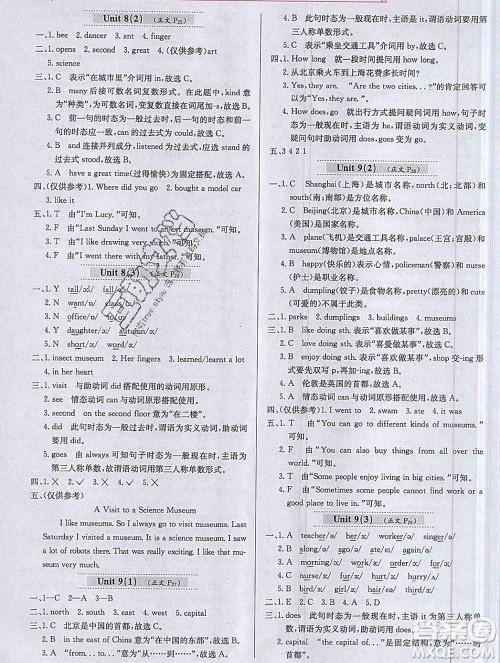 Unit 8(2) (正文 P₂₅)
一、1. bee 2. dancer 3. ant 4. finger
二、1. opens 2. second 3. (仅供参考)art
4. spaces
三、1. C 表示“在城市里”介词用 in,故选 C。
2. B many后接可数名词复数形式, kind 意为
“种类”,为可数名词,变复数直接在词尾加-s,
故选 B。
3. C 前一句的时态为一般过去时,and 前后句子的
时态应一致,故选 C。
4. B and 连接并列成分,listened 为一般过去时,
had a great time(过得愉快),故选 B。
四、(仅供参考)1. Where did you go 2. bought a model car
3. like it
五、1. T 由“I'm Lucy.”可知。
2. F 由“Last Sunday I went to an art museum.”可知。
3. T 由“I like drawing very much.”可知。
4. F 由“I went there with my father.”可知。
Unit 8(3)
一、1. Y tall/ɔː/ all/ɔː/
2. N want/ɒ/
3. N office/ɒ/
4. Y daughter/ɔː/ autumn/ɔː/
5. N short/ɔː/ word/ɜː/
二、1. insect museum 2. Her fingers 3. learned/learnt a lot
4. in her hair
三、1. visit 与助动词 did 搭配使用的动词用原形。
2. see 情态动词 can 与动词原形搭配使用。
3. second on the second floor 意为“在二楼”。
4. did 此句时态为一般过去时,谓语为实义动词,助动词
要用 did。
5. goes 由 always 可知句子时态为一般现在时,主语为
第三人称单数,故谓语动词用第三人称单数形式。
四、1. × 2. ✓ 3. ✓ 4. × 5. ×
五、(仅供参考)
A Visit to a Science Museum
I like museums. So I always go to visit museums. Last
Saturday I visited a museum. It is a science museum. I saw
a lot of robots there. That was really exciting. I like the
museum very much.
Unit 9(1) (正文 P₂₇)
一、1—C 2—A 3—B
二、1. north 2. south 3. east 4. west 5. capital
三、1. A 北京是中国的首都,故选 A。
2. B in the east of China 意为“在中国的东部”,故选 B。
3. A from...to...意为“从……到……”,故选 A。
4. B 此句时态为一般现在时,主语是 it,谓语动词要用第
三人称单数形式。
5. C 表示“乘坐交通工具”介词用 by,故选 C。
四、1. How long 就一段时间提问用 how long。
2. 从北京乘火车到上海花费多长时间?
3. Yes, they are. “Are the two cities...?”的肯定回答可
以为“Yes, they are.”。
4. How does, go 就出行方式提问疑问词用 how,句子时
态为一般现在时,主语为 he,谓语动词为实义动词,变疑
问句时助动词用 does,后接动词原形,故填 go。
五、3 4 2 1
Unit 9(2) (正文 P₂₉)
一、1. C Shanghai(上海)是城市名称,north(北;北部)和
south(南;南部)是方位名称。
2. C Beijing(北京)是城市名称,China(中国)和America
(美国)是国家名称。
3. A plane(飞机)是交通工具名称,palace(宫殿;大宅)
和 museum(博物馆)是地点名称。
4. B happy(快乐的)表示心情,writer(作家)和 nurse
(护士)是职业名称。
5. A dumpling(饺子)是食物名称,pretty(漂亮的)和 clever
(聪明的)是形容词。
二、1. parks 2. dumplings 3. buildings 4. museum
三、1. B like doing sth. 表示“喜欢做某事”,故选 B。
2. C love doing sth. 表示“喜爱做某事”,故选 C。
3. B enjoy doing sth. 表示“喜欢做某事”,shop 变-ing 形
式要先双写 p,再加-ing,故选 B。
4. A 伦敦是英国的首都,故选 A。
5. A 情态动词 can 与动词原形搭配,故选 A。
四、(仅供参考)1. I went to 2. swam 3. ate 4. it was
五、1. F 由“You can go to different kinds of museums.”
可知。
2. F 由“You can also buy things from all over the
world.”可知。
3. T 由“Some people enjoy living in big cities.”可知。
4. T 由“Some people can't find somewhere cheap or
good to live”可知。
Unit 9(3) (正文 P₃₁)
一、1. A teacher/ə/ her/ɜː/ worker/ə/
2. B answer/ə/ winter/ə/ were/ɜː/
3. C girl/ɜː/ bird/ɜː/ actor/ə/
4. A learn/ɜː/ hear/ɪə/ year/ɪə/
5. B sister/ə/ nurse/ɜː/ singer/ə/
二、1. C 2. E 3. B 4. A 5. D
三、1. does 此句时态为一般现在时,主语 it 为第三人称单
数,谓语为实义动词,故助动词用 does。
2. capital “the capital of...”是固定结构,意为“……的
首都”。